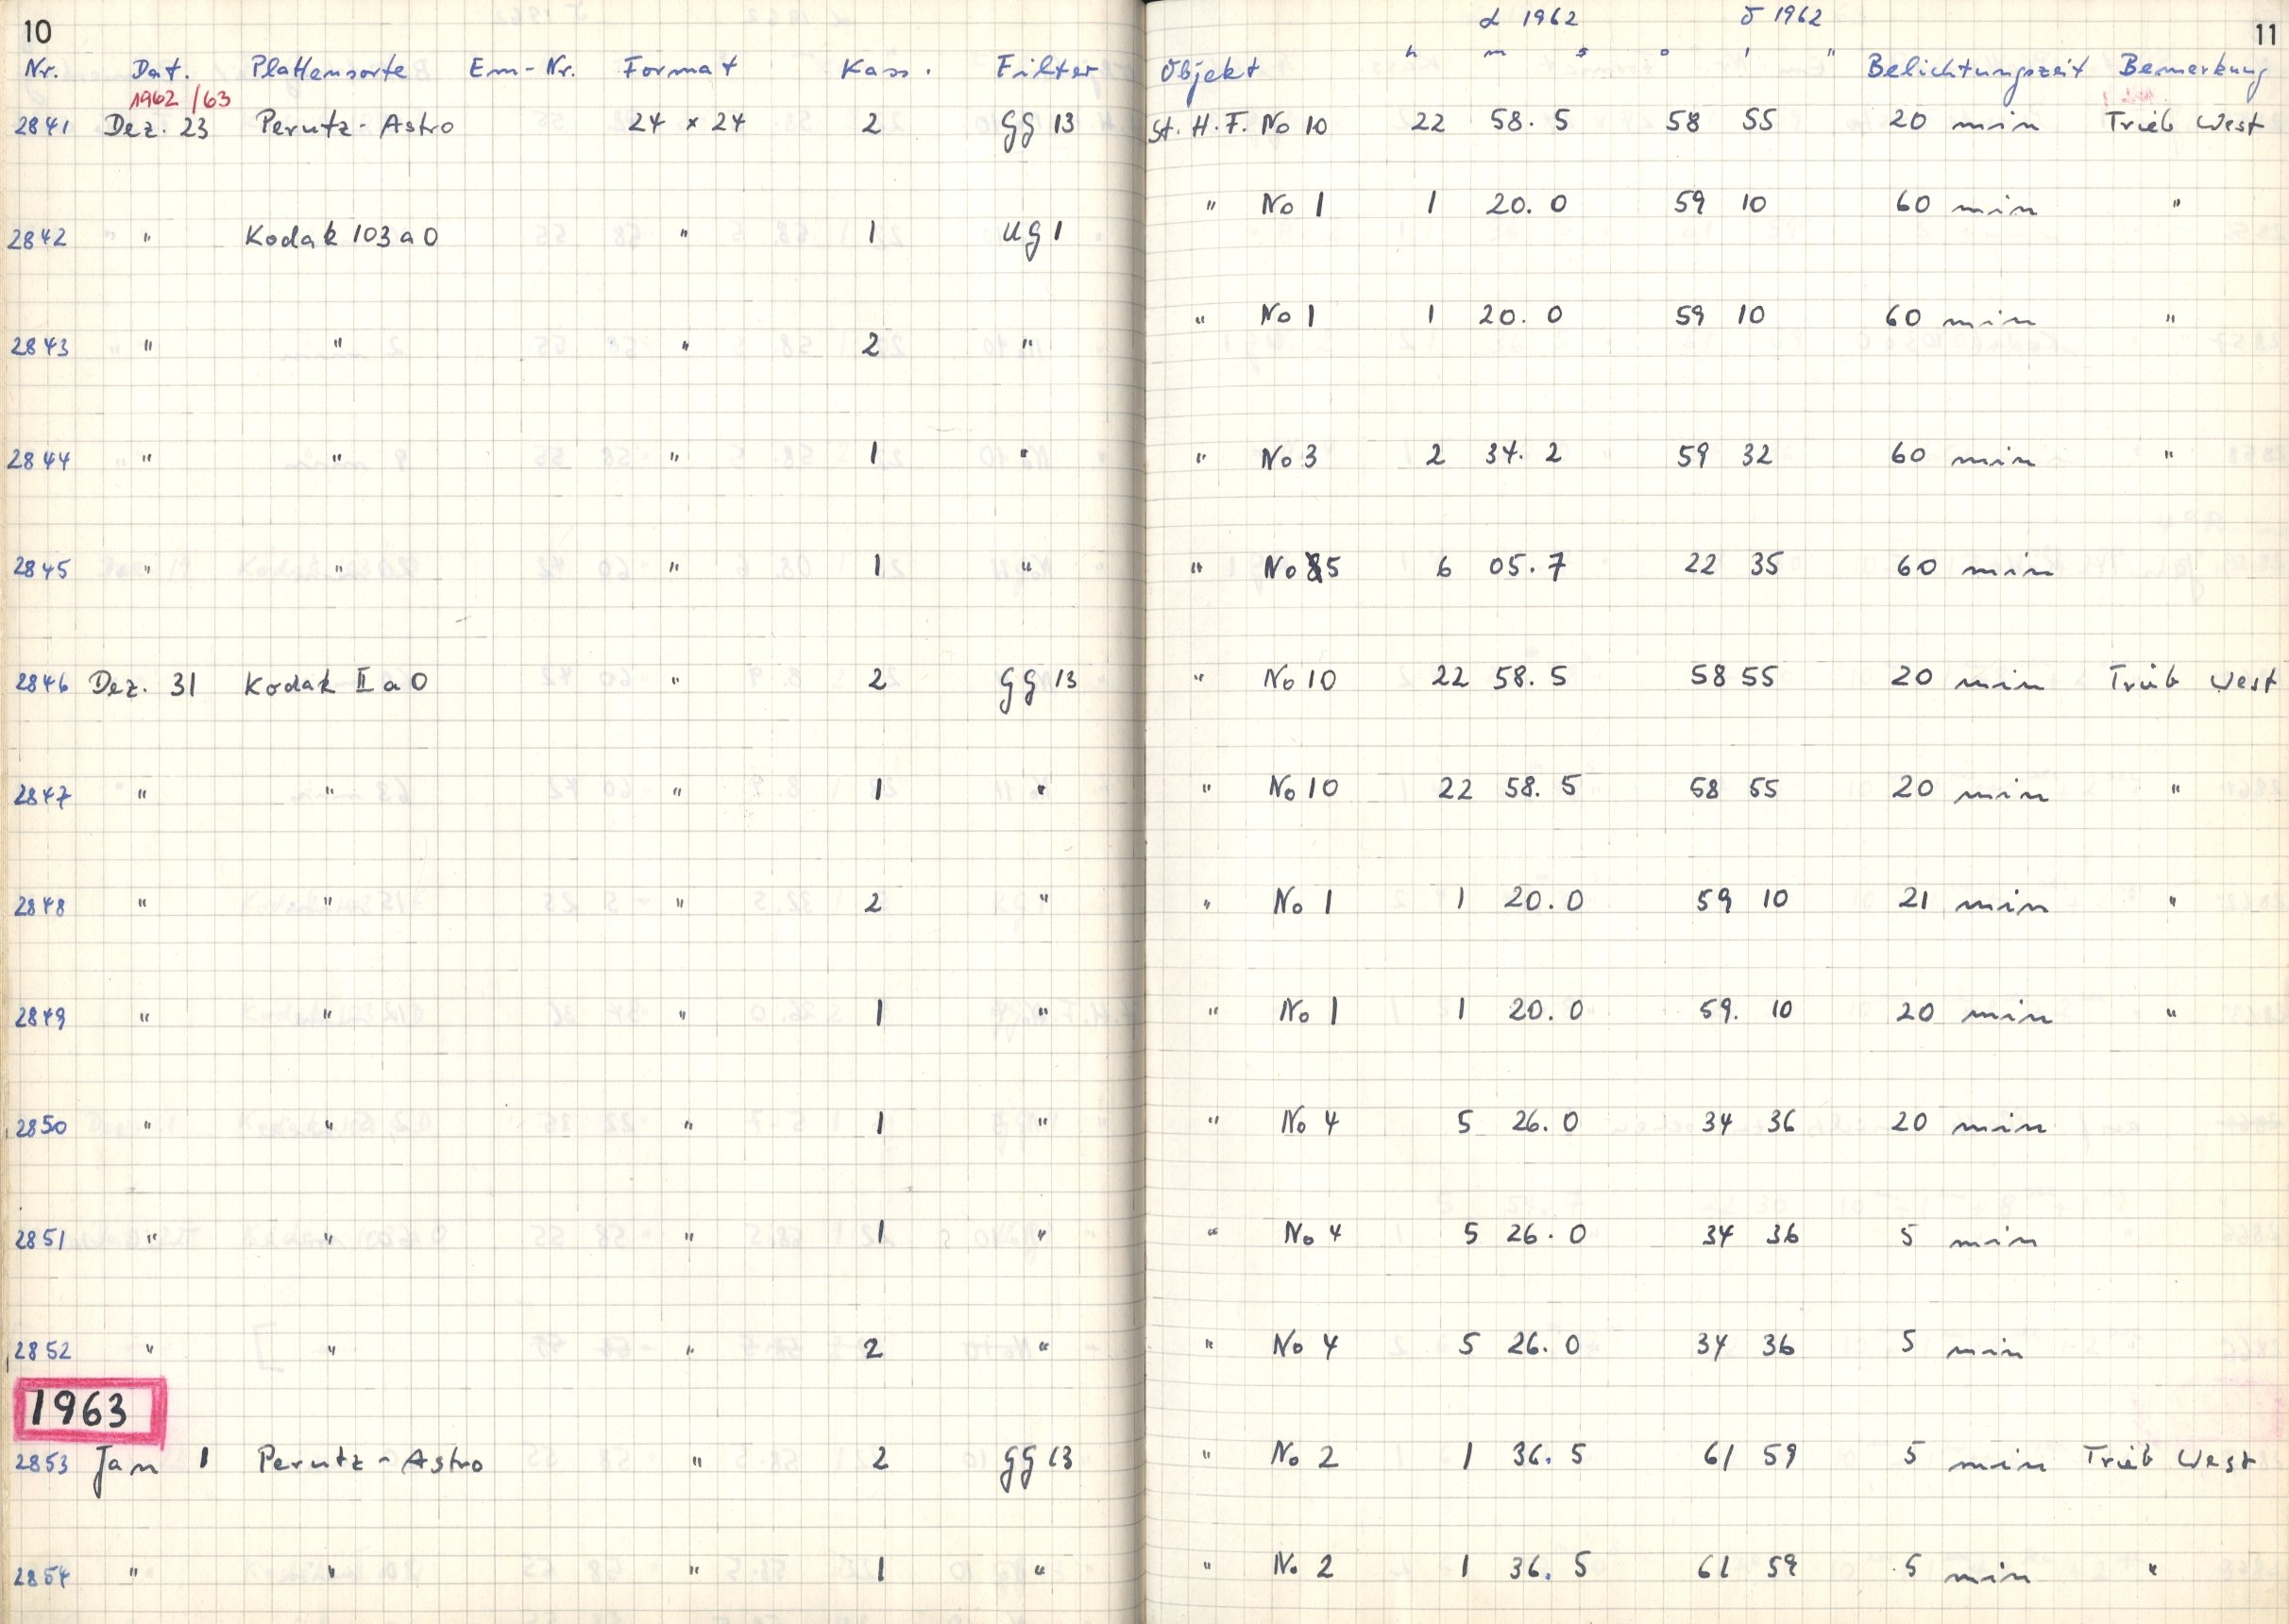 10
α 1962 δ 1962
11
h m s ° ' "
Nr. Dat. Plattensorte Em-Nr. Format Kass. Filter Objekt Belichtungszeit Bemerkung
1962/63
2841 Dez. 23 Perutz-Astro 24 × 24 2 GG 13 St. H. F. No 10 22 58.5 58 55 20 min Trieb West
2842 " Kodak 103 a O " 1 UG 1 " No 1 1 20.0 59 10 60 min "
2843 " " " 2 " " No 1 1 20.0 59 10 60 min "
2844 " " " 1 " " No 3 2 34.2 59 32 60 min "
2845 " " " 1 " " No 5 6 05.7 22 35 60 min
2846 Dez. 31 Kodak II a O " 2 GG 13 " No 10 22 58.5 58 55 20 min Trieb West
2847 " " " 1 " " No 10 22 58.5 58 55 20 min "
2848 " " " 2 " " No 1 1 20.0 59 10 21 min "
2849 " " " 1 " " No 1 1 20.0 59. 10 20 min "
2850 " " " 1 " " No 4 5 26.0 34 36 20 min
2851 " " " 1 " " No 4 5 26.0 34 36 5 min
2852 " " " 2 " " No 4 5 26.0 34 36 5 min
1963
2853 Jan 1 Perutz-Astro " 2 GG 13 " No 2 1 36.5 61 59 5 min Trieb West
2854 " " " 1 " " No 2 1 36.5 61 59 5 min "